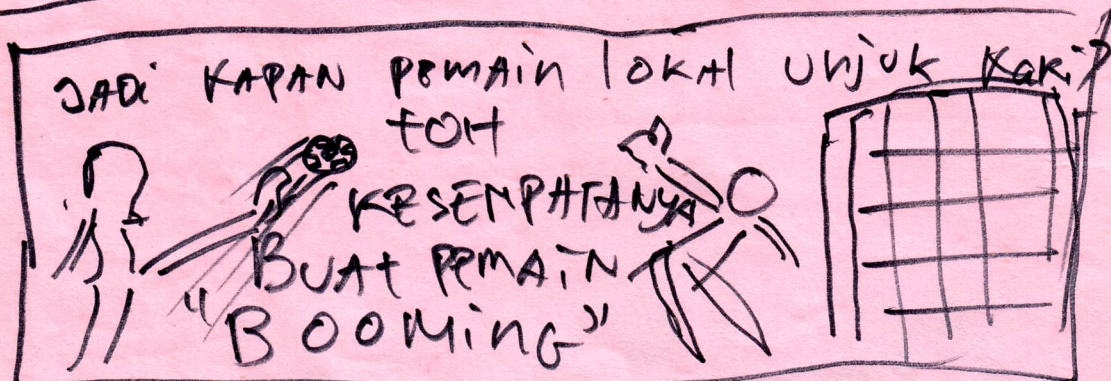 JADI KAPAN PEMAIN lOKAl UNjUK KAKi?
tOH
KESEMPATANYA
BUAt PEMAiN
"BOOMiNG"